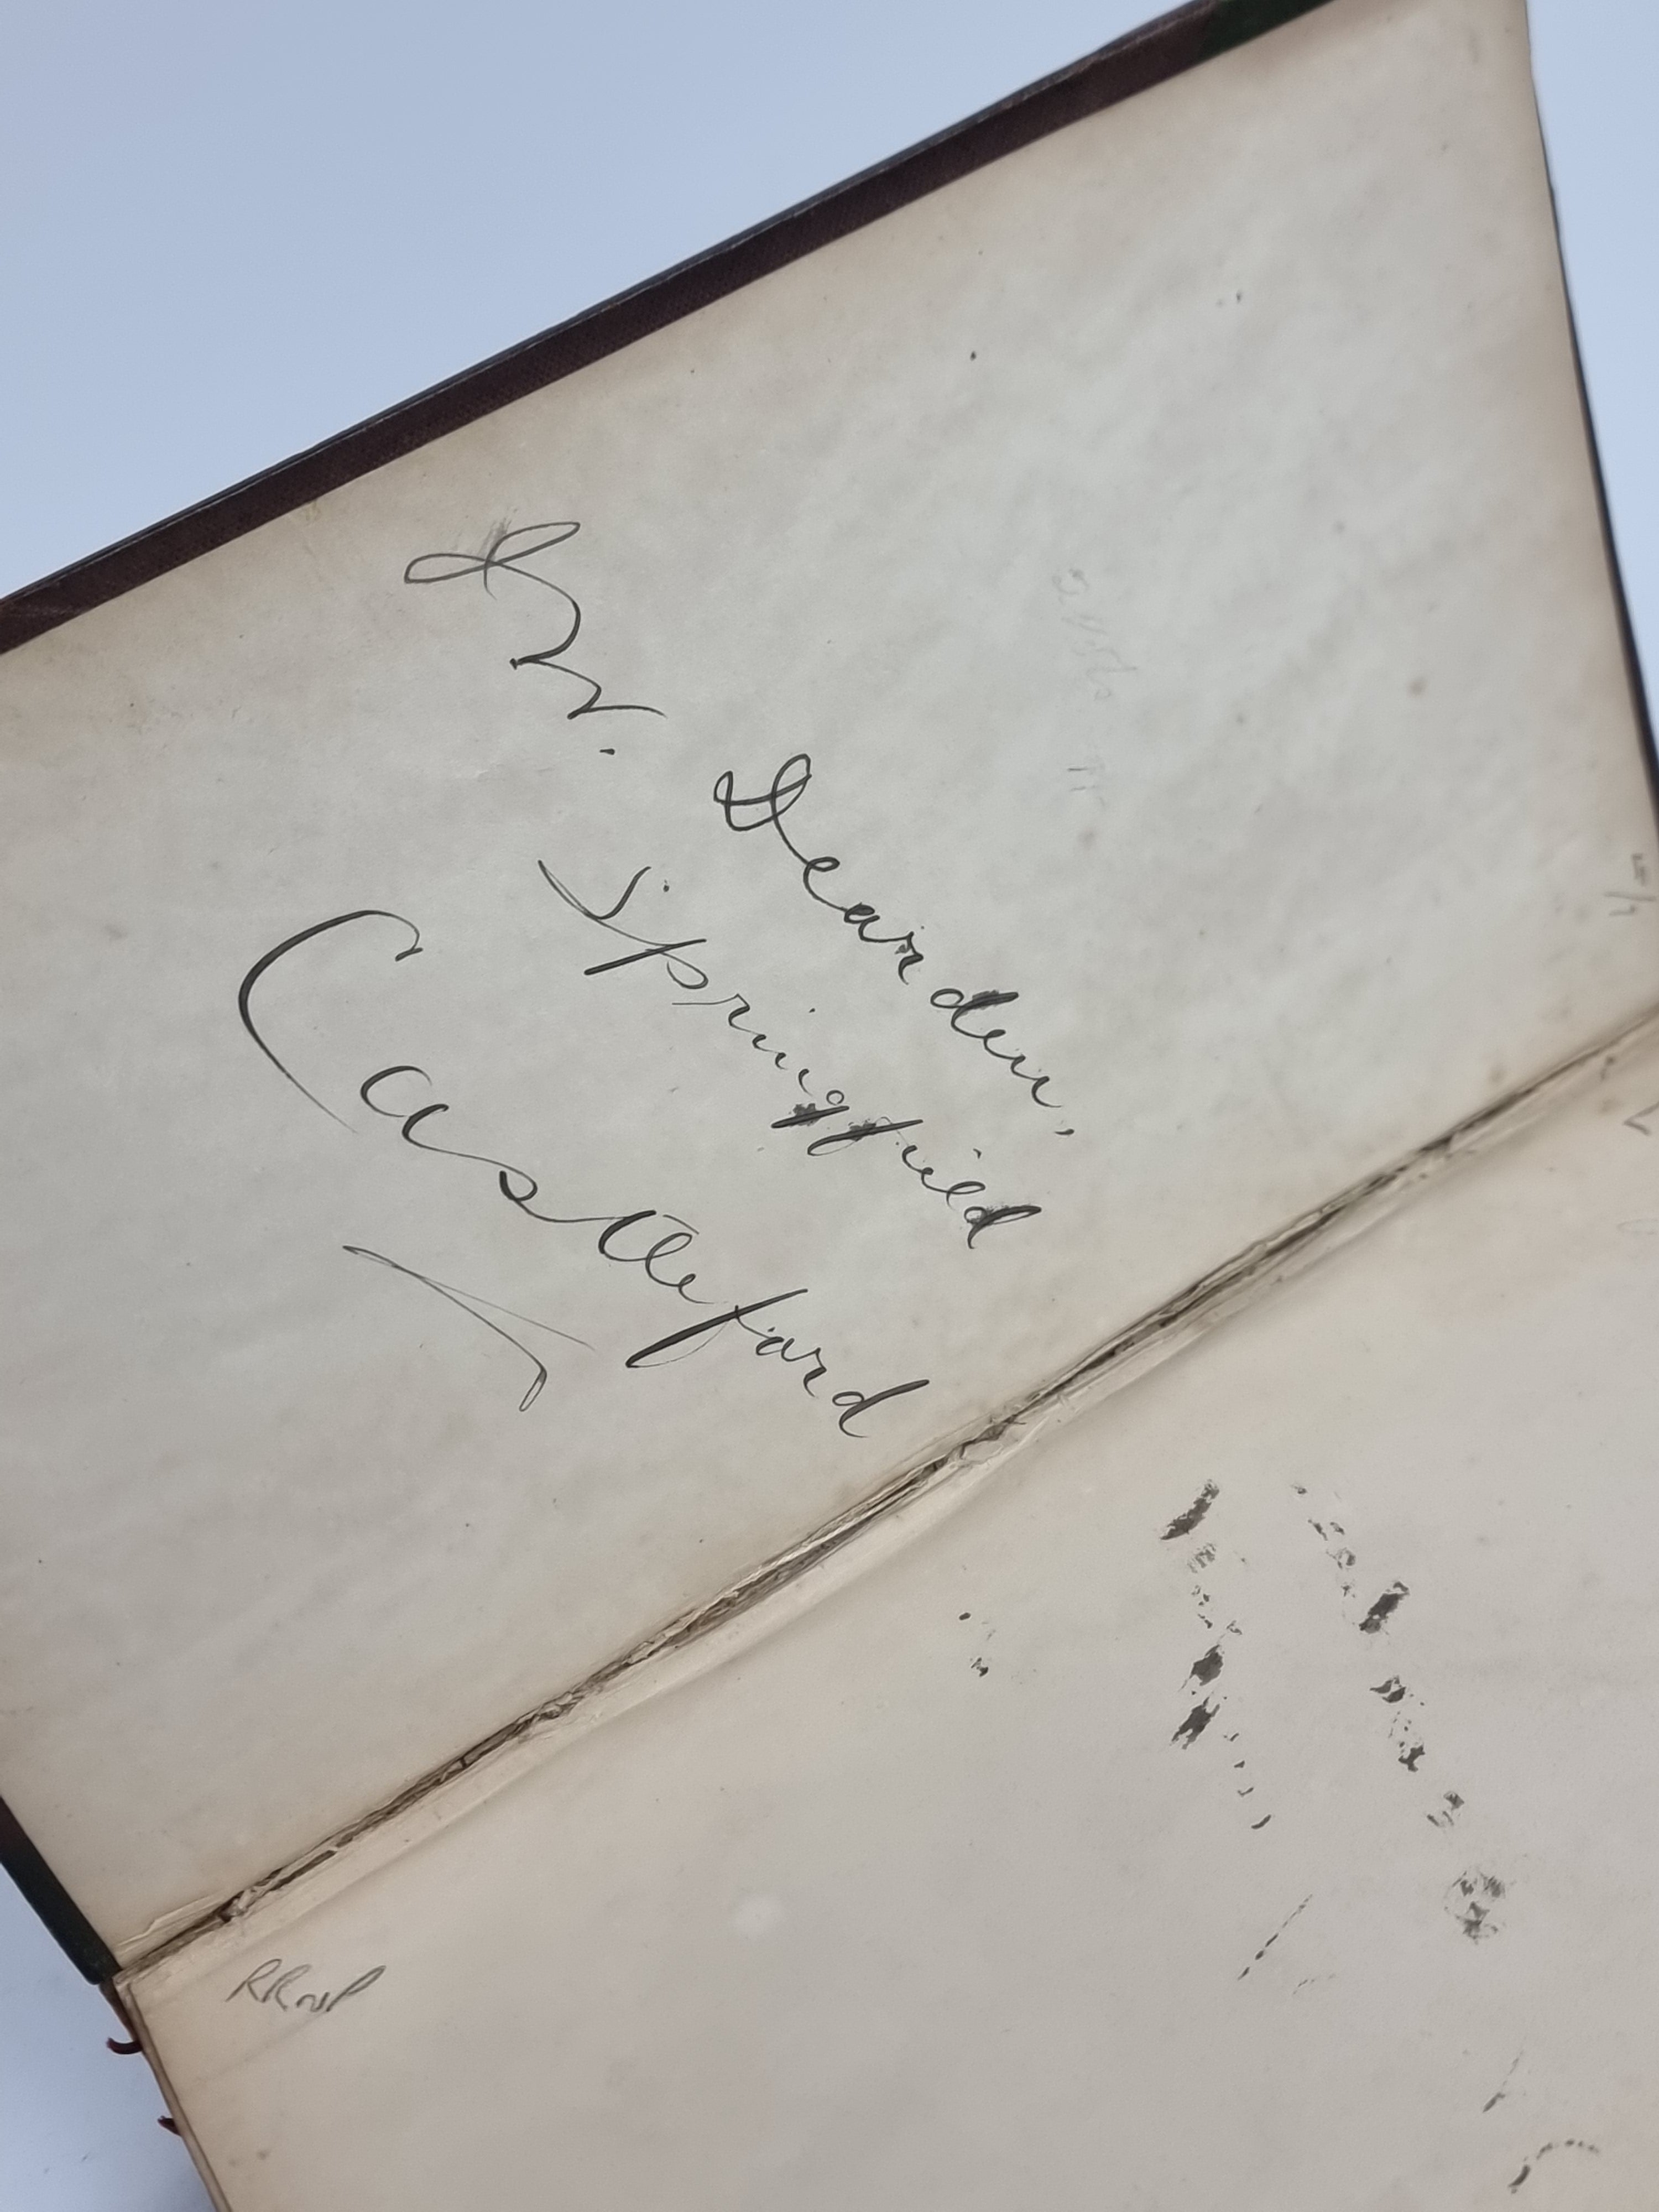 W. Dearden,
Springfield
Castleford